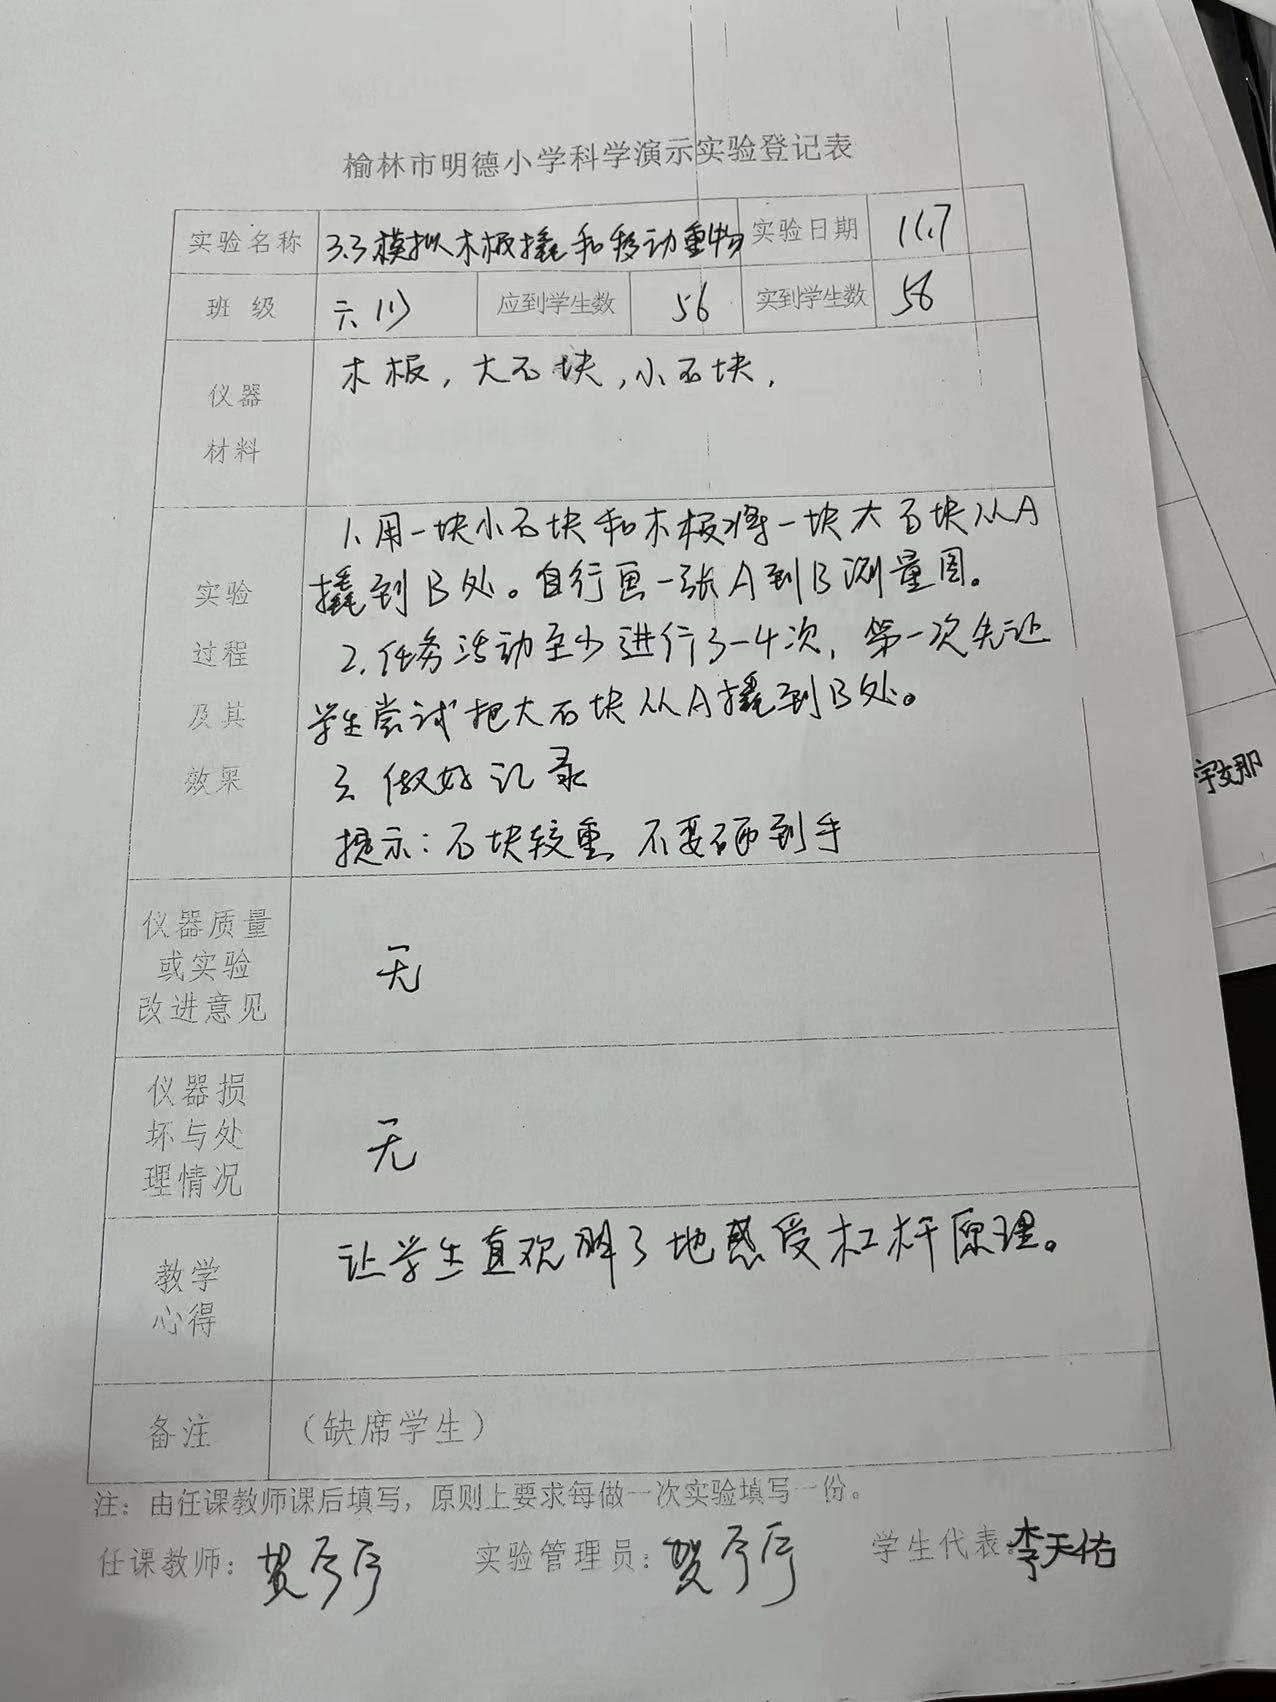 榆林市明德小学科学演示实验登记表
实验名称 3.3模拟木板撬和移动重物 实验日期 11.7
班 级 六.(1) 应到学生数 56 实到学生数 56
仪器
材料
木板，大石块，小石块，
实验
过程
及其
效果
1.用一块小石块和木板将一块大石块从A
撬到B处。自行画一张A到B测量图。
2.任务活动至少进行3-4次，第一次先让
学生尝试把大石块从A撬到B处。
3.做好记录
提示：石块较重 不要砸到手
仪器质量
或实验
改进意见
无
仪器损
坏与处
理情况
无
教学
心得
让学生直观 了地感受杠杆原理。
备注 （缺席学生）
注：由任课教师课后填写，原则上要求每做一次实验填写一份。
任课教师： 实验管理员： 学生代表：李天佑